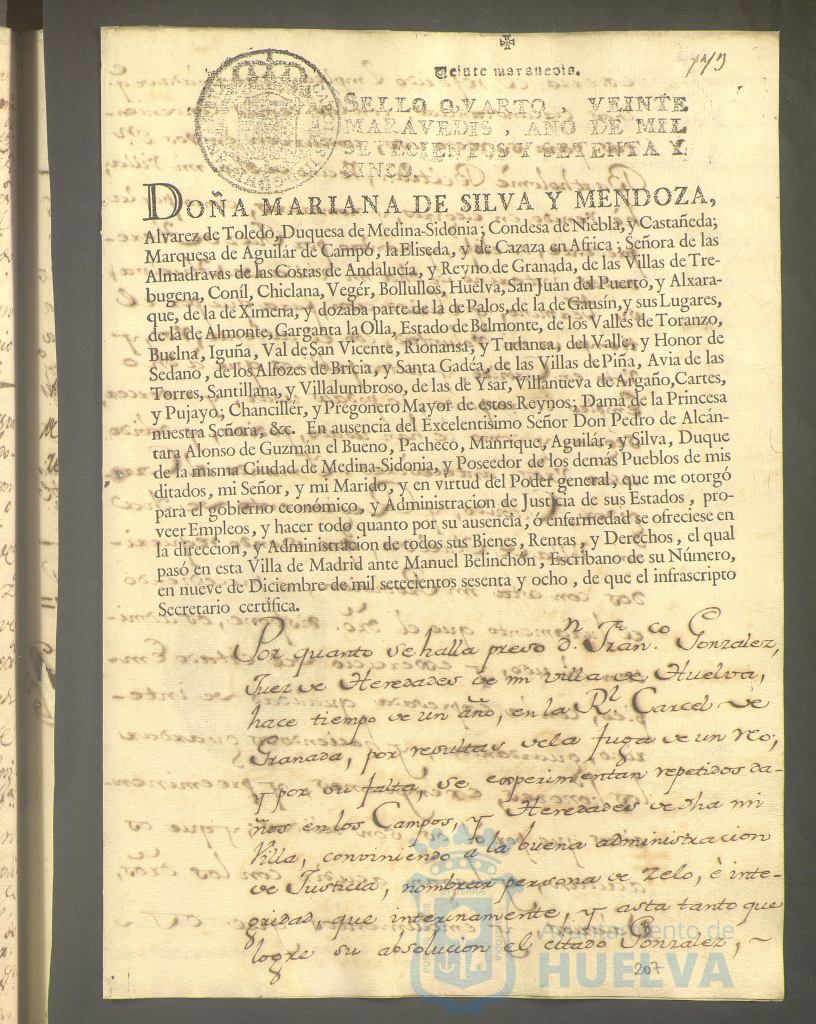 Veinte maravedis.
SELLO QVARTO, VEINTE
MARAVEDIS, AÑO DE MIL
SETECIENTOS Y SETENTA Y
CINCO.
DOÑA MARIANA DE SILVA Y MENDOZA,
Alvarez de Toledo, Duquesa de Medina-Sidonia; Condesa de Niebla, y Castañeda;
Marquesa de Aguilár de Campó, la Eliseda, y de Cazaza en Africa; Señora de las
Almadravas de las Costas de Andalucía, y Reyno de Granada, de las Villas de Tre-
bugena, Coníl, Chiclana, Vegér, Bollullos, Huelva, San Juan del Puerto, y Alxara-
que, de la de Ximena, y dozaba parte de la de Palos, de la de Gausín, y sus Lugares,
de la de Almonte, Garganta la Olla, Estado de Belmonte, de los Valles de Toranzo,
Buelna, Iguña, Val de San Vicente, Rionansa, y Tudanca, del Valle, y Honor de
Sedano, de los Alfozes de Bricia, y Santa Gadéa, de las Villas de Piña, Avia de las
Torres, Santillana, y Villalumbroso, de las de Ysar, Villanueva de Argaño, Cartes,
y Pujayo; Chancillér, y Pregonero Mayor de estos Reynos; Dama de la Princesa
nuestra Señora, &c. En ausencia del Excelentisimo Señor Don Pedro de Alcán-
tara Alonso de Guzmán el Bueno, Pacheco, Manrique, Aguilár, y Silva, Duque
de la misma Ciudad de Medina-Sidonia, y Poseedor de los demás Pueblos de mis
ditados, mi Señor, y mi Marido, y en virtud del Poder general, que me otorgó
para el gobierno económico, y Administracion de Justicia de sus Estados, pro-
veer Empleos, y hacer todo quanto por su ausencia, ó enfermedad se ofreciese en
la direccion, y Administracion de todos sus Bienes, Rentas, y Derechos, el qual
pasó en esta Villa de Madrid ante Manuel Belinchón, Escribano de su Número,
en nueve de Diciembre de mil setecientos sesenta y ocho, de que el infrascripto
Secretario certifica.
Por quanto se halla preso dn. Franco. Gonzalez,
Juez de Heredades de mi villa de Huelva,
hace tiempo de un año, en la Rl. Carcel de
Granada, por resultas dela fuga de un reo;
y por su falta, se experimentan repetidos da-
ños en los Campos, y Heredades de dha mi
Villa, conviniendo a la buena administracion
de Justicia, nombrar persona de zelo, è inte-
gridad, que interinamente, y asta tanto que
logre su absolucion el citado Gonzalez, ~
207
Ayuntamiento de
HUELVA